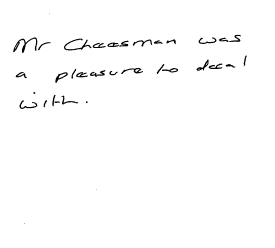 Mr Cheesman was
a pleasure to deal
with.